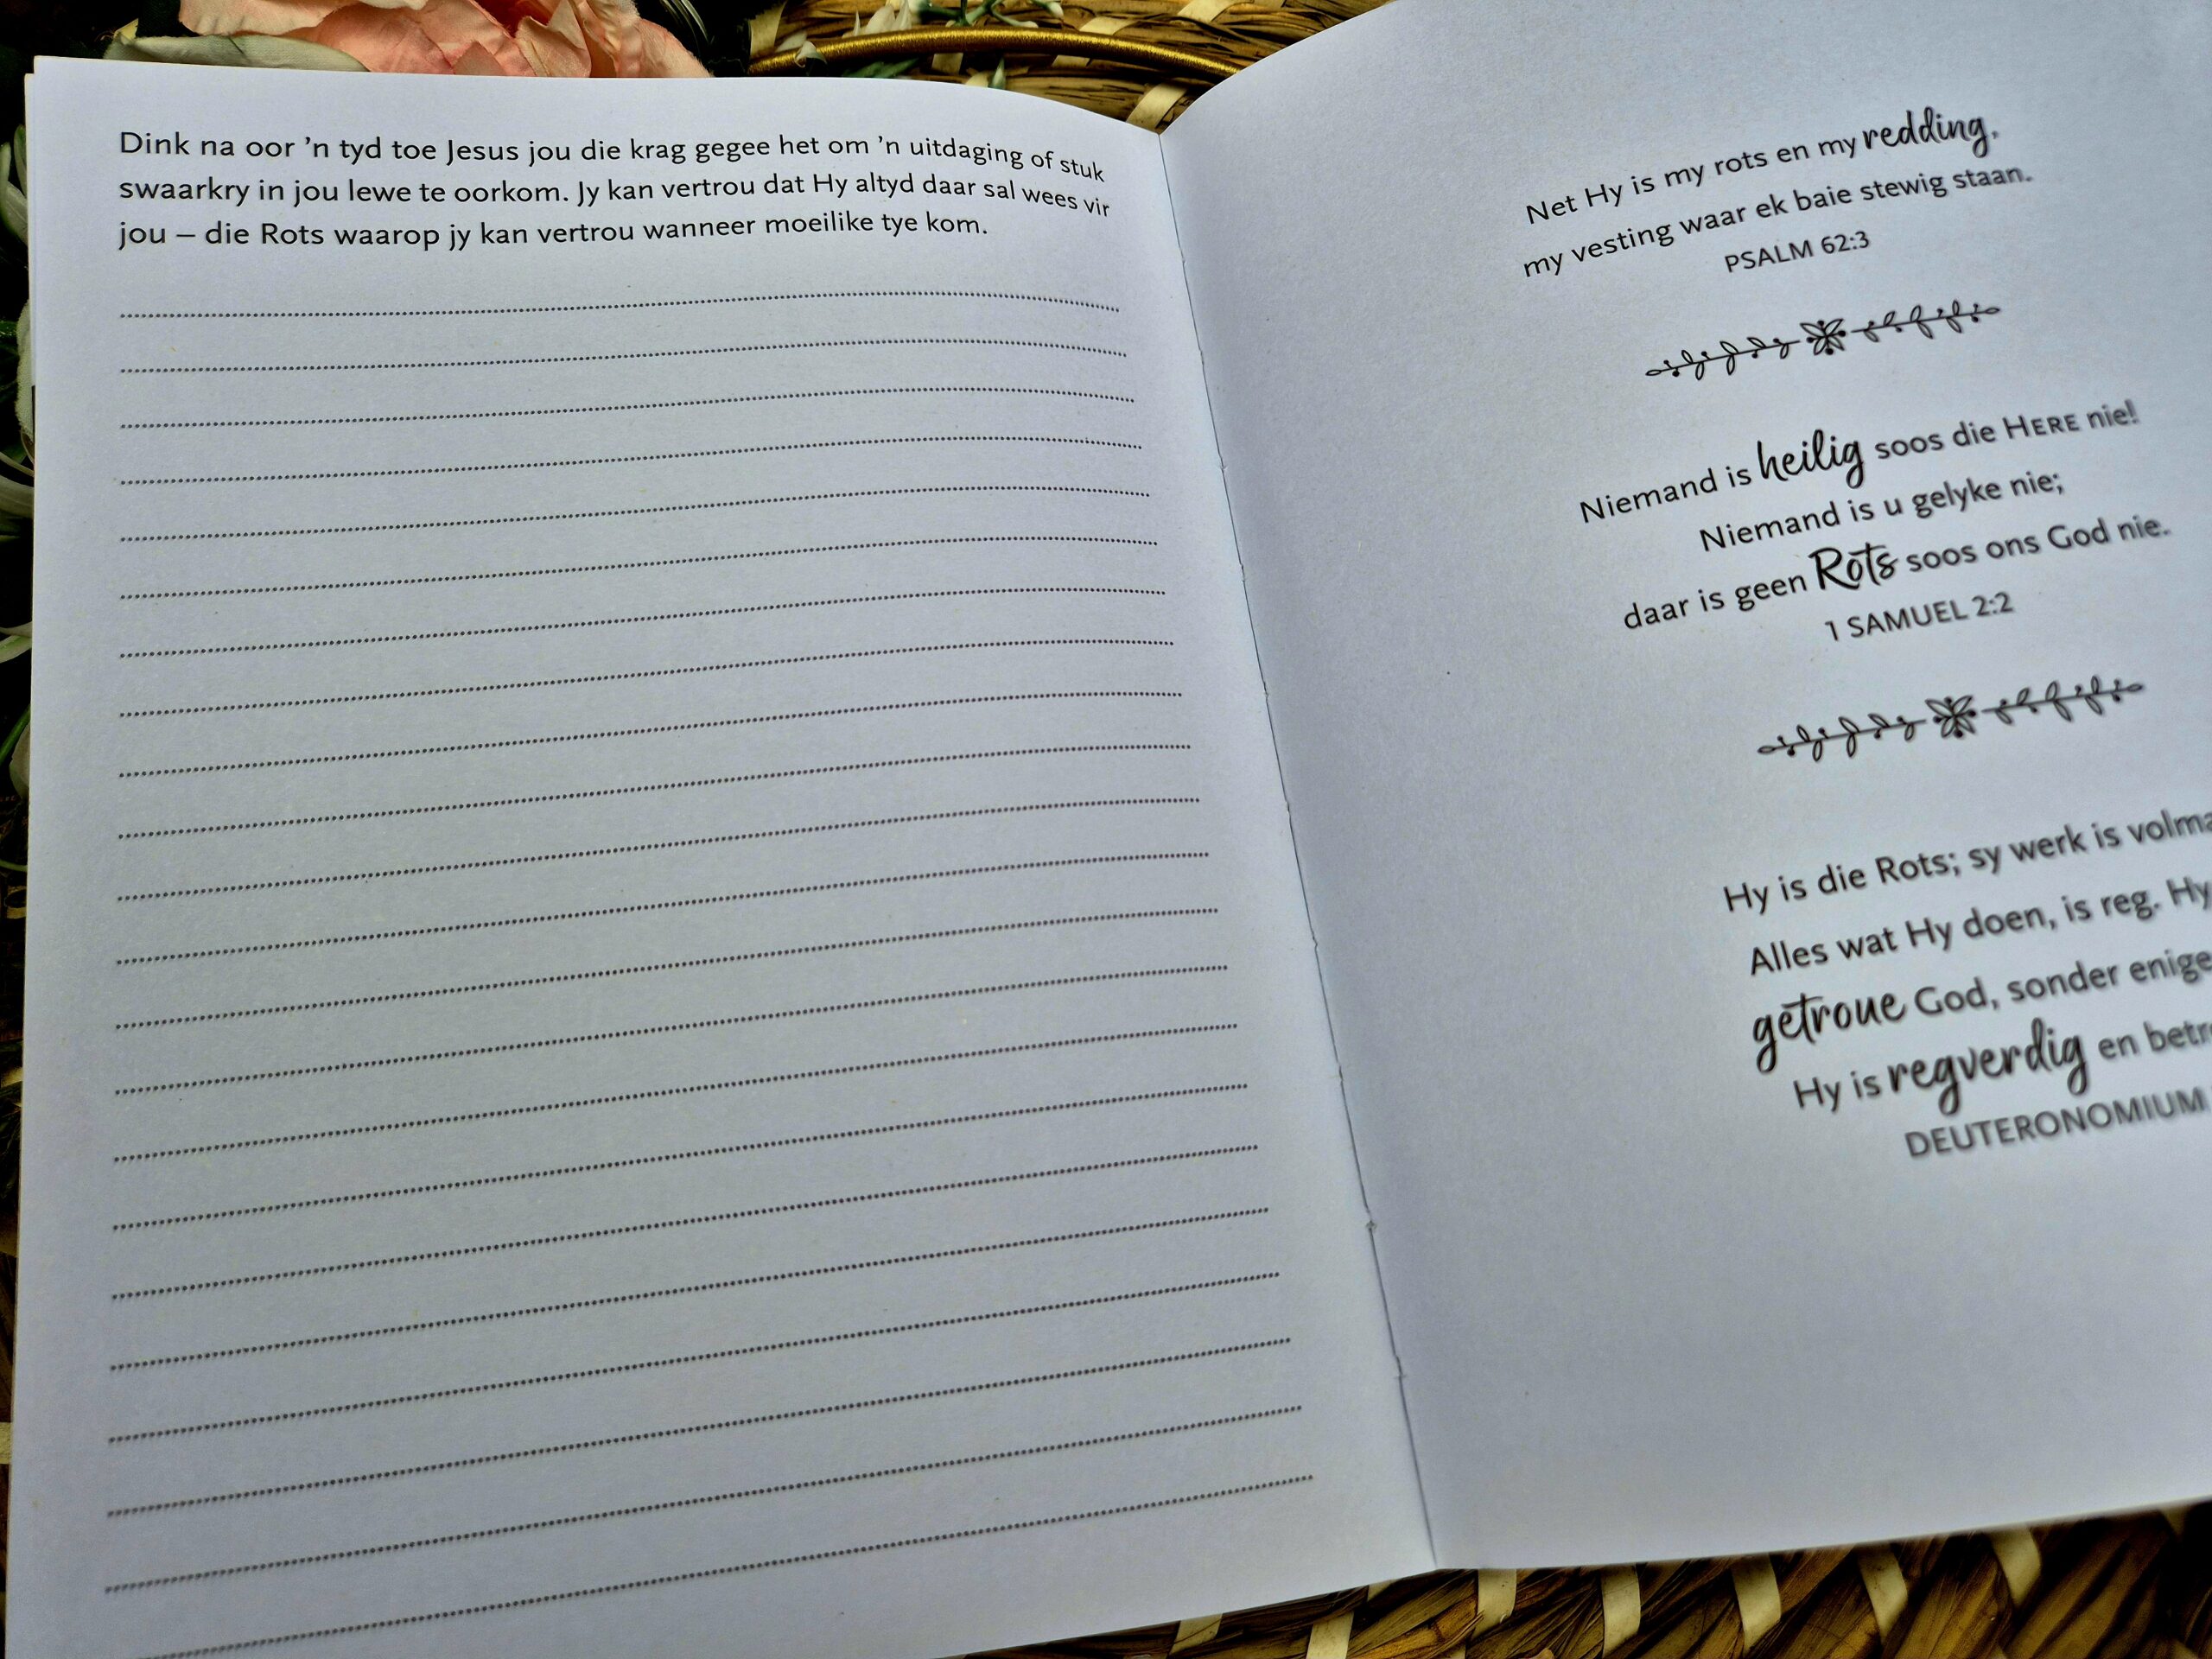 Dink na oor 'n tyd toe Jesus jou die krag gegee het om 'n uitdaging of stuk
swaarkry in jou lewe te oorkom. Jy kan vertrou dat Hy altyd daar sal wees vir
jou – die Rots waarop jy kan vertrou wanneer moeilike tye kom.
Net Hy is my rots en my redding,
my vesting waar ek baie stewig staan.
PSALM 62:3
Niemand is heilig soos die HERE nie!
Niemand is u gelyke nie;
daar is geen Rots soos ons God nie.
1 SAMUEL 2:2
Hy is die Rots; sy werk is
Alles wat Hy doen, is reg. Hy
getroue God, sonder enige
Hy is regverdig en
DEUTERONOMIUM